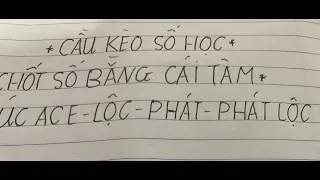 * CẦU KÈO SỐ HỌC *
CHỐT SỐ BẰNG CÁI TÂM *
ÚC ACE - LỘC - PHÁT - PHÁT LỘC